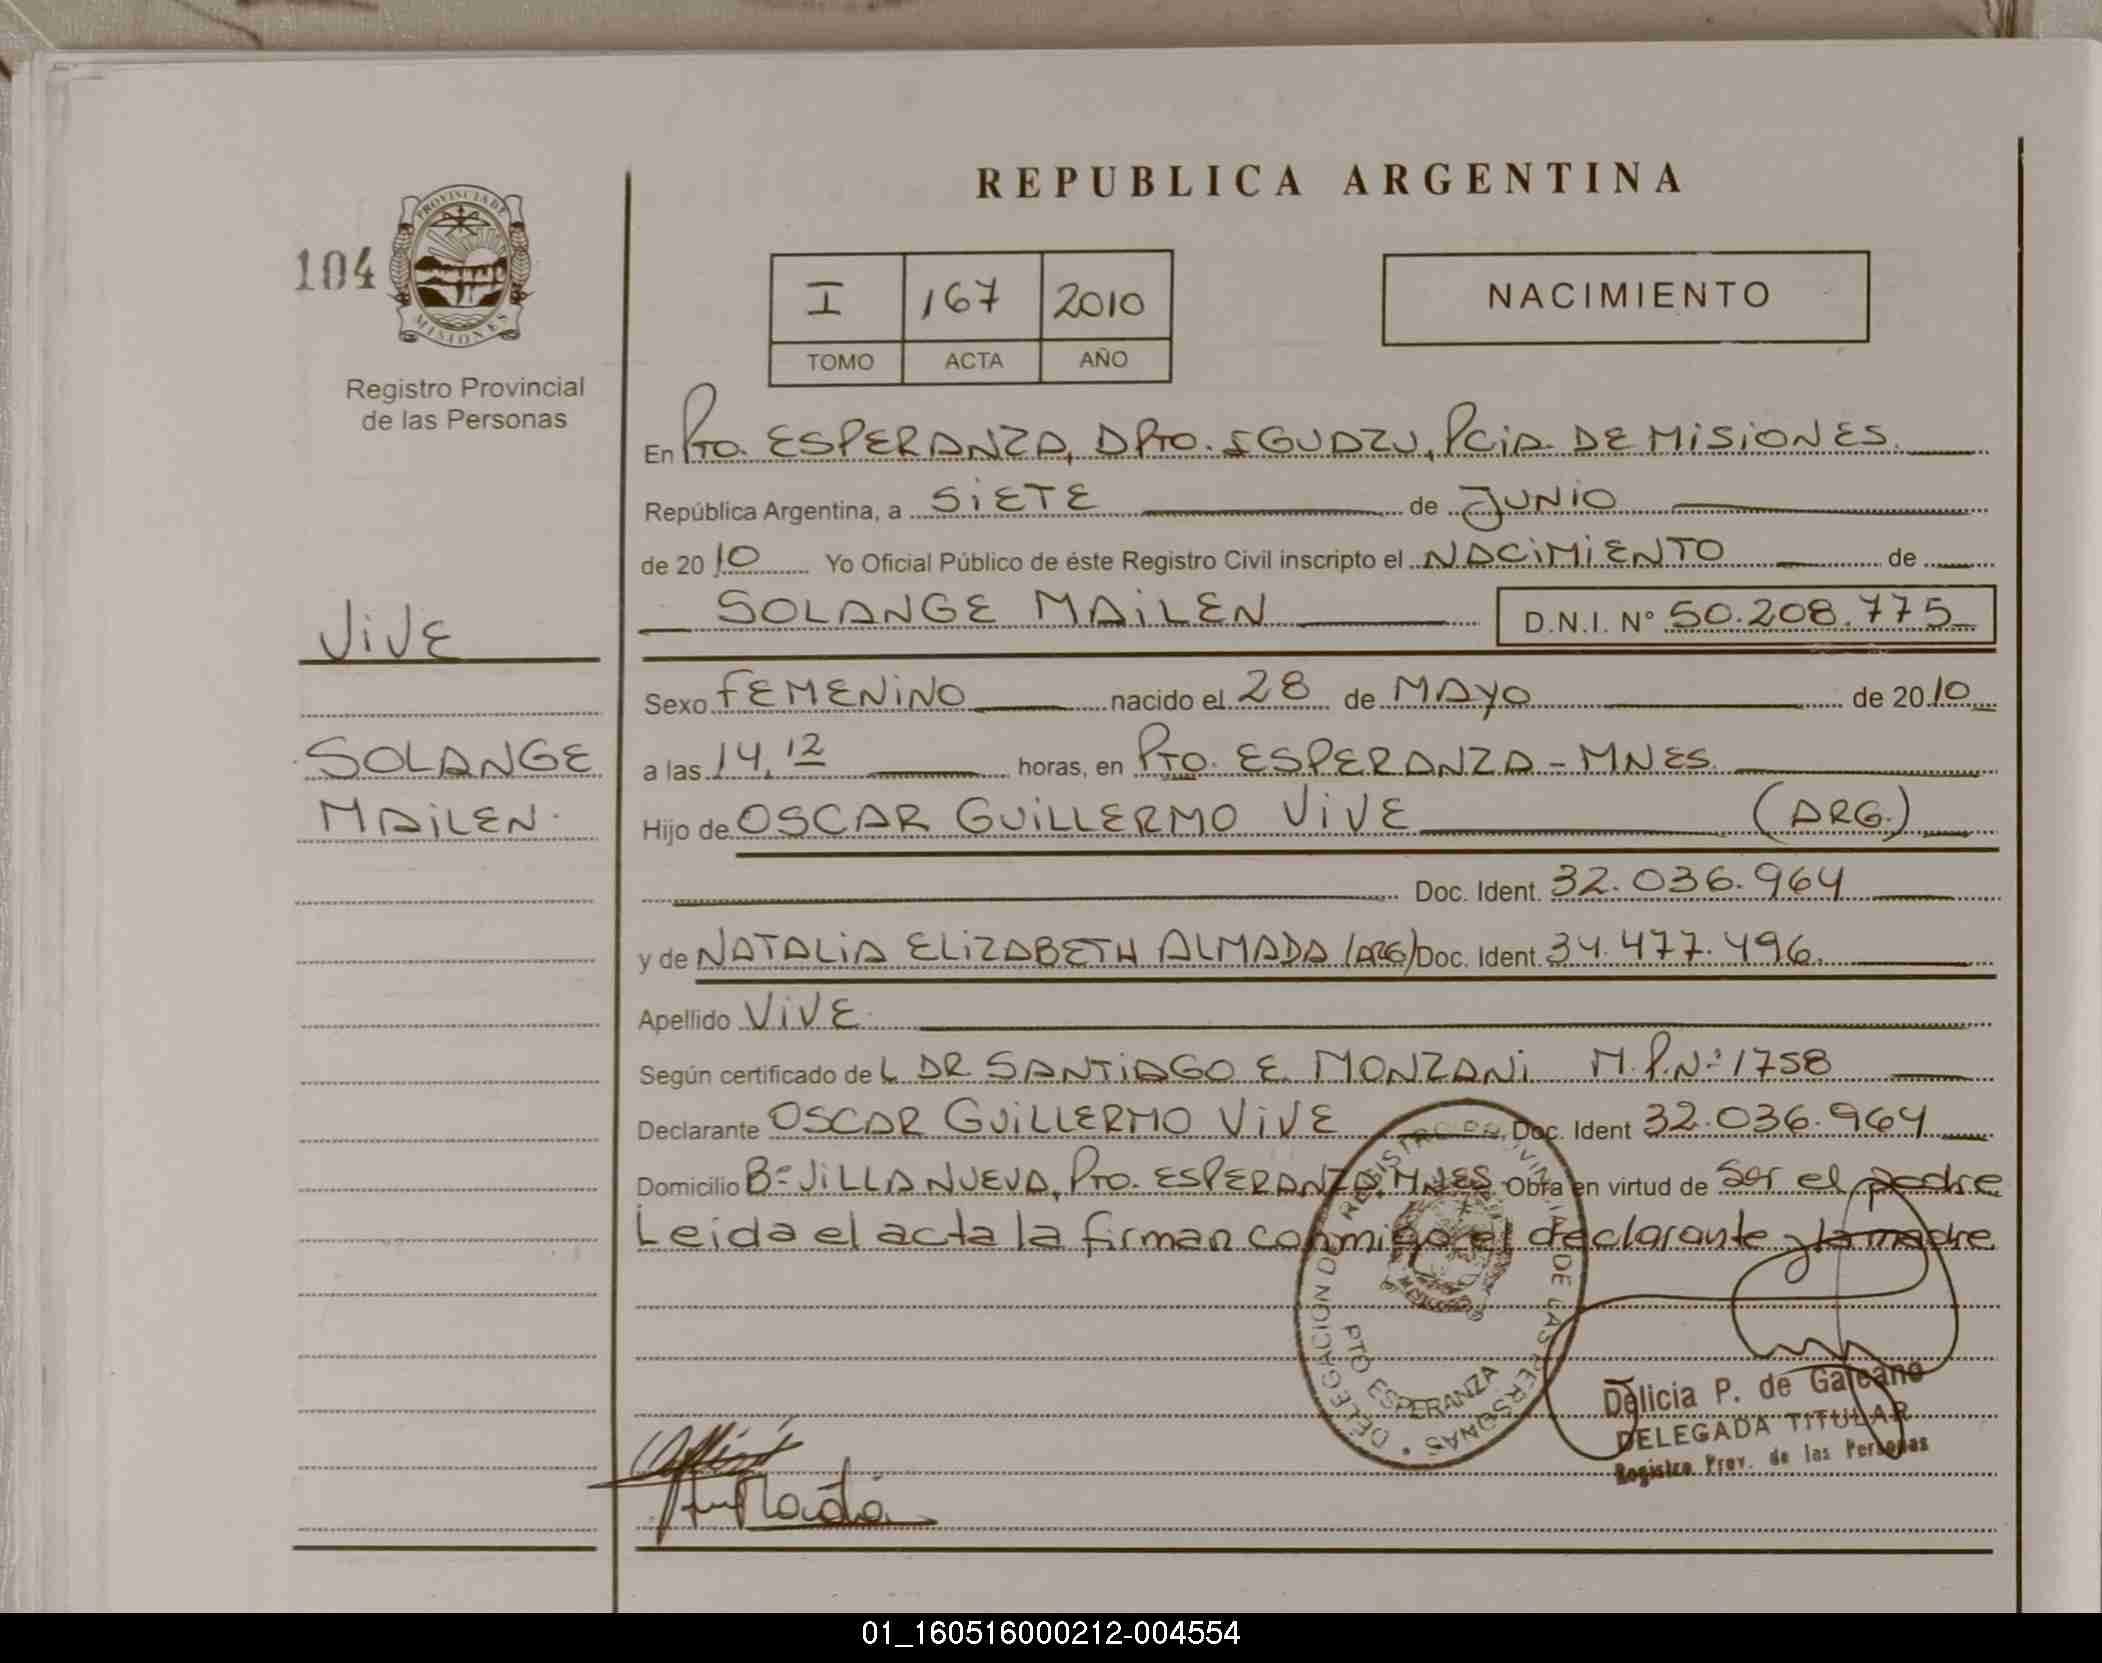 REPUBLICA ARGENTINA
104
PROVINCIA DE
MISIONES
Registro Provincial
de las Personas
I 167 2010
TOMO ACTA AÑO
NACIMIENTO
En Pto. ESPERANZA, DPto. IGUAZU, PciA. DE MiSiONES.
República Argentina, a SiETE de JUNiO
de 2010 Yo Oficial Público de éste Registro Civil inscripto el NACiMiENTO de
SOLANGE MAiLEN D.N.I. Nº 50.208.775
ViVE
Sexo FEMENiNO nacido el 28 de MAyO de 2010
SOLANGE
a las 14,12 horas, en Pto. ESPERANZA - MNES.
MAiLEN.
Hijo de OSCAR GUiLLERMO ViVE (ARG.)
Doc. Ident. 32.036.964
y de NATALiA ELiZABETH ALMADA (ARG) Doc. Ident. 34.477.496.
Apellido ViVE.
Según certificado de L DR SANTiAGO E. MONZANi M.P.Nº 1758
Declarante OSCAR GUiLLERMO ViVE Doc. Ident 32.036.964
Domicilio Bº ViLLA NUEVA, Pto. ESPERANZA, MNES. Obra en virtud de Ser el padre
Leida el acta la firman conmigo el declarante y la madre.
DELEGACION DE REGISTRO PROVINCIAL DE LAS PERSONAS
PTO ESPERANZA
Delicia P. de Galeano
DELEGADA TITULAR
Registro Prov. de las Personas
01_160516000212-004554